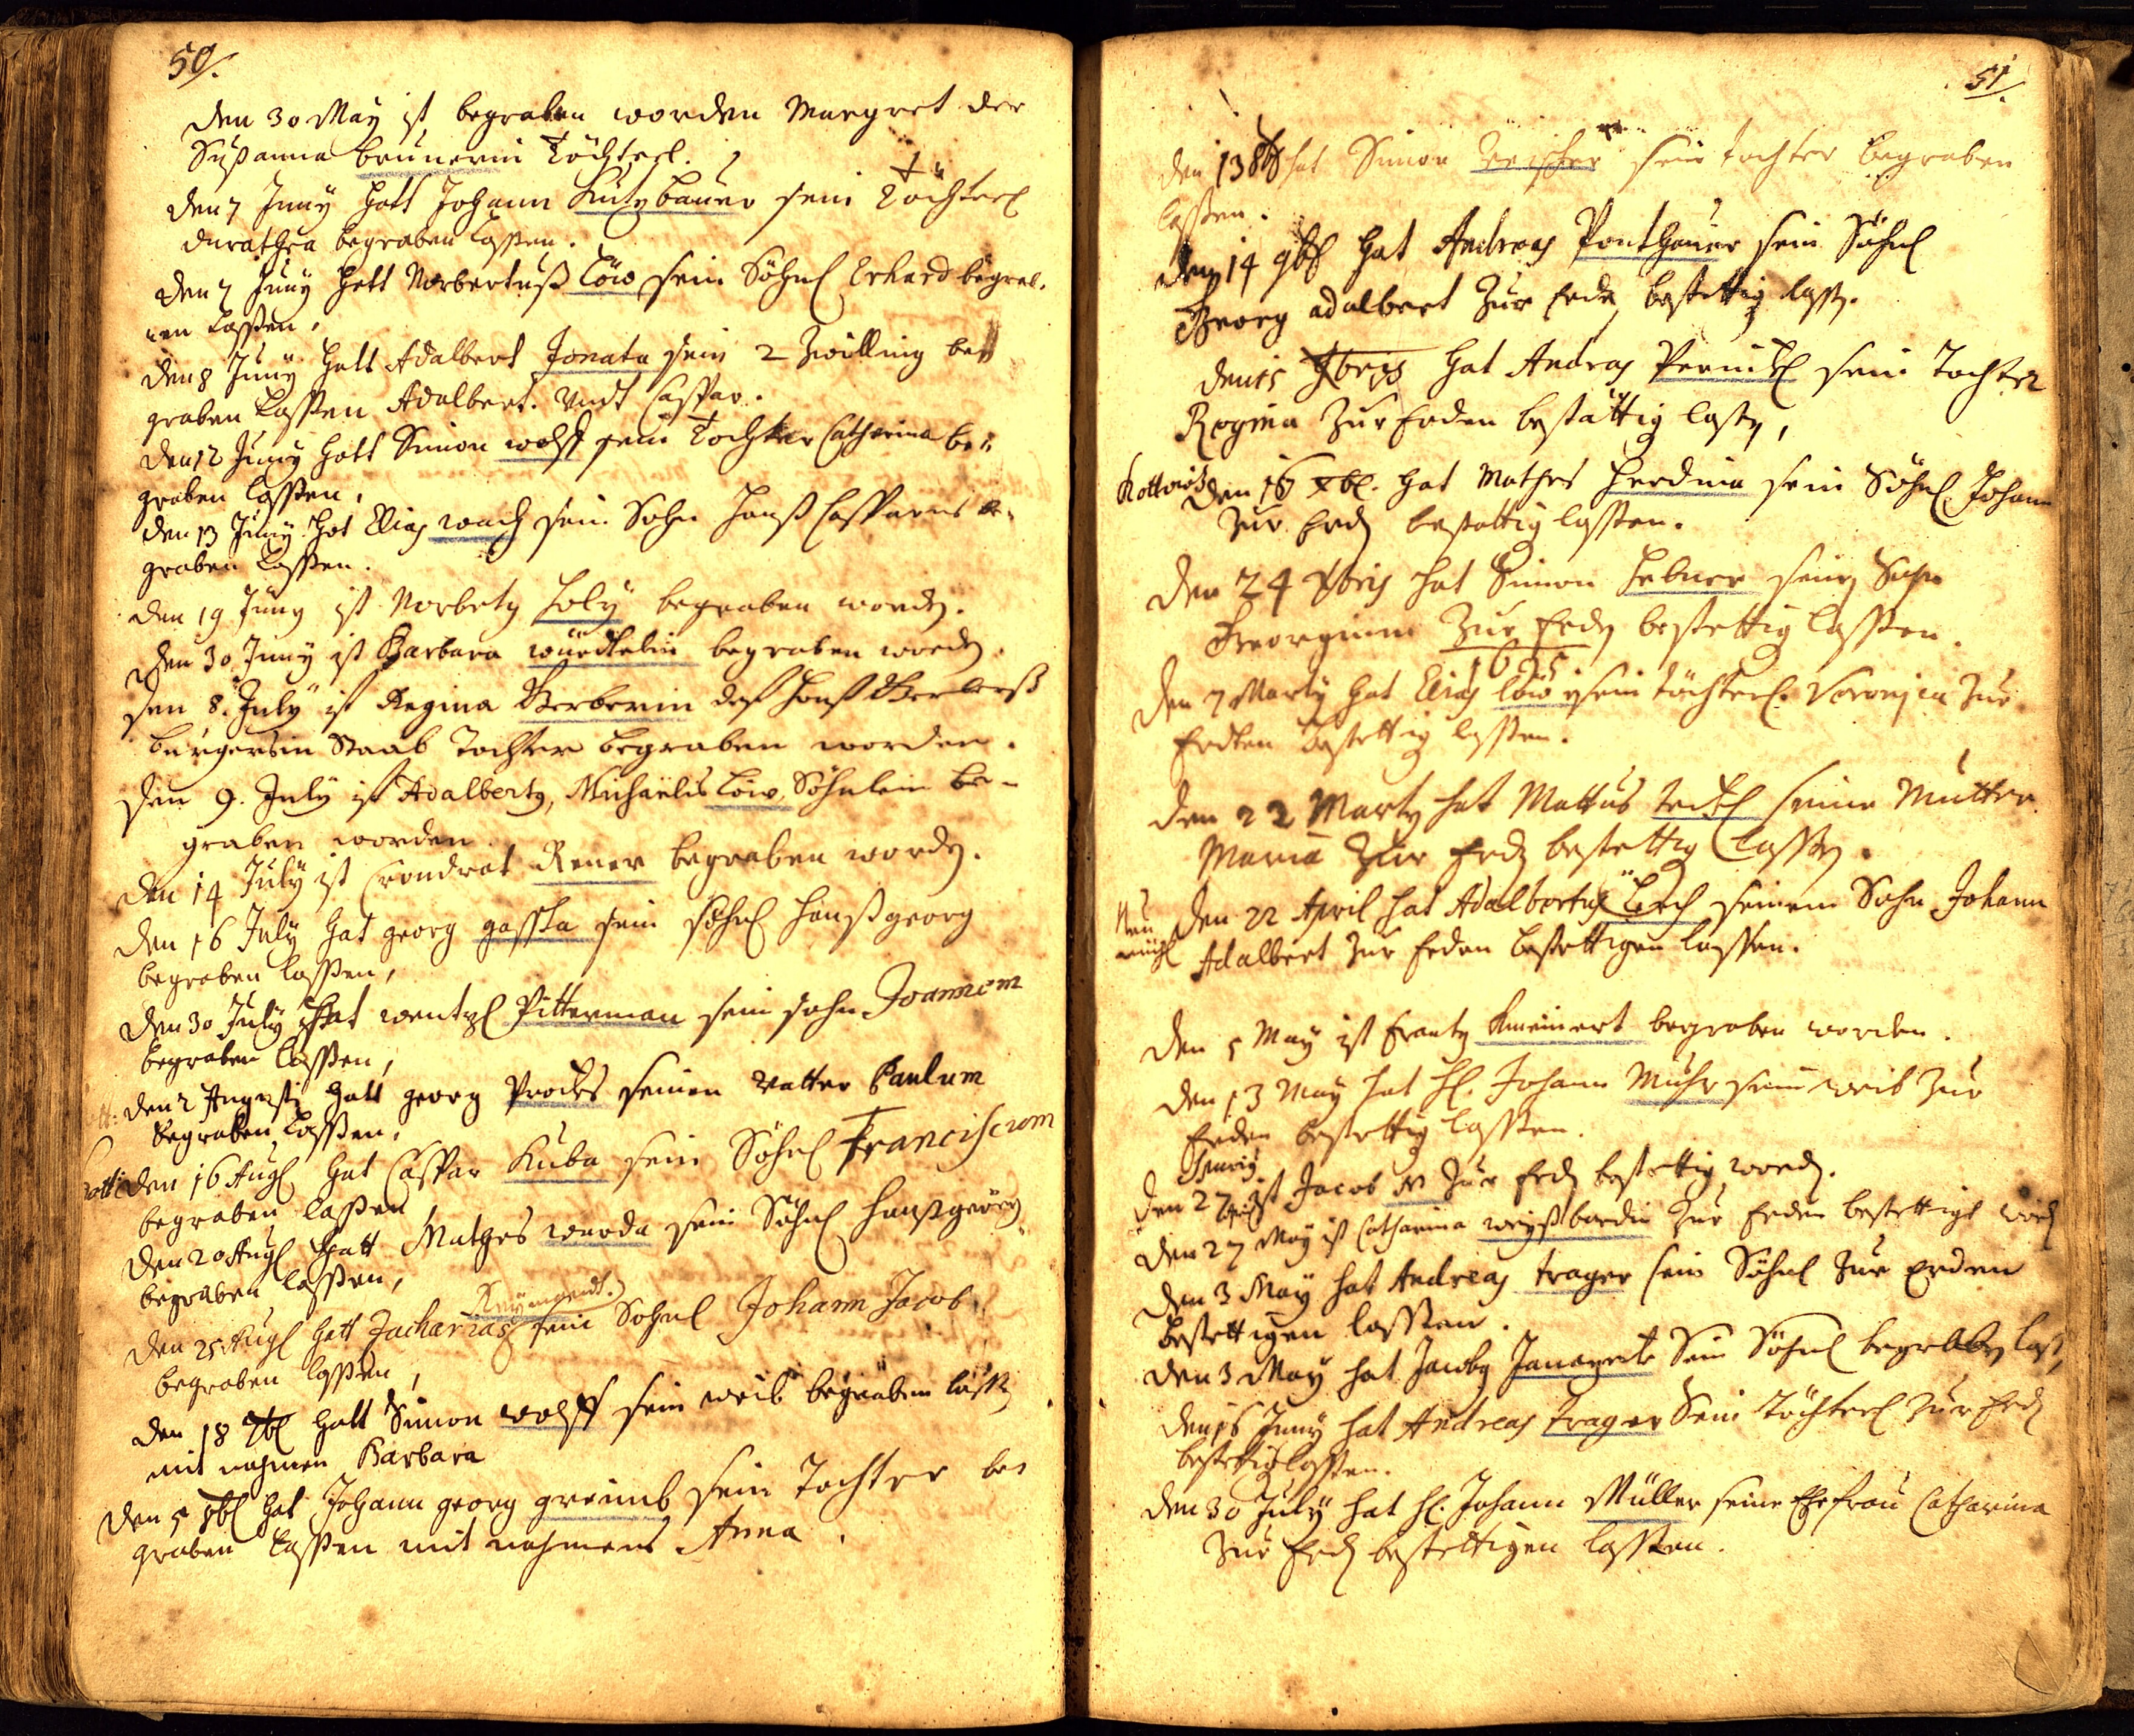 50/.
den 30 May ist begraben worden Margret der
Susanna brunerin Töchterl.
den 7 Juny hatt Johann Kutzbauer sein Töchterl
durathea begraben lassen.
den 7 Juny hatt Norbertuß Löw sein Söhnl Erhard begra-
ben lassen,
den 8 Juny hatt Adalbert Jonata sein 2 Zwilling be-
graben lassen Adalbert. Undt Caspar.
den 12 Juny hatt Simon wolff sein Tochter Catharina be-
graben lassen,
den 13 Juny hat Elias wach sein Sohn Hanß Casparus be-
graben lassen.
den 19 Juny ist Norberty holy begraben worden.
den 30 Juny ist Barbara begraben worden.
den 8. July ist Regina Gerberin deß Hanß Gerberß
burgers in Staab Tochter begraben worden.
den 9. July ist Adalberty, Michaëlis Löw, Söhnlein be-
graben worden
den 14 July ist Condrat Rener begraben worden.
den 16 July hat georg gasska sein söhnl hanß georg
begraben lassen,
den 30 July hat wentzl Pitterman sein sohn Joannem
begraben lassen,
den 2 Augusti hatt georg Prockes seinen Vatter Paulum
begraben lassen,
Kotti den 16 Augl hat Caspar Kuba sein Söhnl Franciscum
begraben lassen,
den 20 Augl hatt Mathes warda sein Söhnl hanß georg
begraben lassen,
den 25 Augl hatt Zacharias sein Sohnl Johann Jacob
begraben lassen,
den 18 7bl hatt Simon wolff sein weib begraben lassen
mit nahmen Barbara
den 5 8bl hat Johann georg greimb sein Tochter be-
graben lassen mit nahmens Anna.
51/.
den 13 8b hat Simon sein tochter begraben
lassen.
den 14 9bl hat Andreas Ponthauer sein Söhnl
Georg adalbert Zur Erde bestettig lassen.
den 15 Xbris hat Andreas sein Tochter
Regina Zur Erden bestättig lassen,
Kottwitz den 16 Xbl. hat Mathes herdina sein Söhnl Johann
Zur Erden bestattig lassen.
den 24 Xbris hat Simon hebner seinen Sohn
Georgium Zur Erden bestettig lassen.
1695
den 7 Marty hat Elias löw sein töchterl. Veronica Zur
Erdten bestettig lassen.
den 22 Marty hat Mattus seine Mutter
Maria Zur Erden bestettig lassen.
den 22 April hat Adalbertus Lerch seinem Sohn Johann
Adalbert Zur Erden bestettigen lassen.
den 5 May ist Frantz begraben worden.
den 13 May hat H. Johann Muhr sein weib Zur
Erden bestettig lassen.
den 27 ist Jacob N Zur Erden bestettig worden.
den 27 May ist Catharina weißbardin Zur Erden bestettigt word
den 3 May hat Andreas trager sein Söhnl Zur Erden
bestettigen lassen.
den 3 May hat Jacoby Sein Söhnl begraben lassen,
den 16 Juny hat Andreas trager Sein Töchterl Zur Erden
bestettig lassen.
den 30 July hat H. Johann Müller seine Ehefrau Catharina
Zur Erden bestettigen lassen.